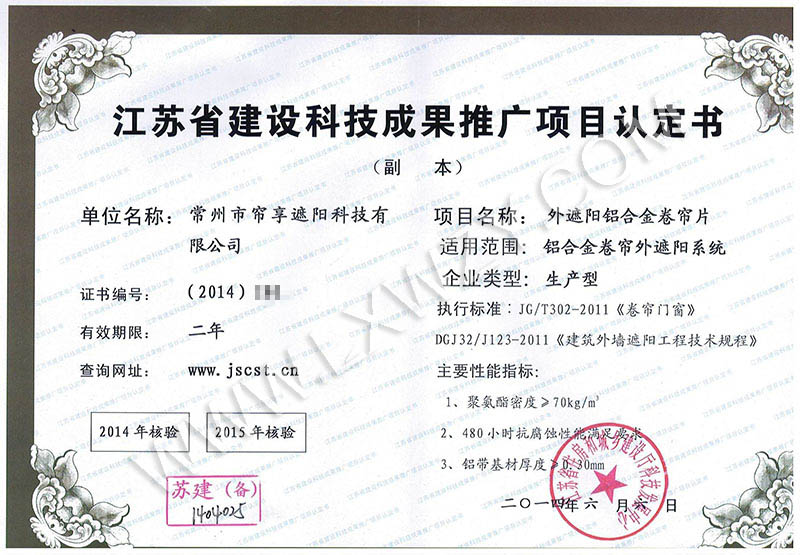 江苏省建设科技成果推广项目认定书
（副 本）
单位名称： 常州市帘享遮阳科技有
限公司
证书编号： （2014）
有效期限： 二年
查询网址： www.jscst.cn
2014年核验 2015年核验
苏建（备）
1404025
项目名称： 外遮阳铝合金卷帘片
适用范围： 铝合金卷帘外遮阳系统
企业类型： 生产型
执行标准：JG/T302-2011《卷帘门窗》
DGJ32/J123-2011《建筑外墙遮阳工程技术规程》
主要性能指标：
1、聚氨酯密度≥70kg/m³
2、480小时抗腐蚀性能满足要求
3、铝带基材厚度≥0.30mm
江苏省住房和城乡建设厅科技发展中心
二〇一四年六月 日
WWW.LXWZY.COM